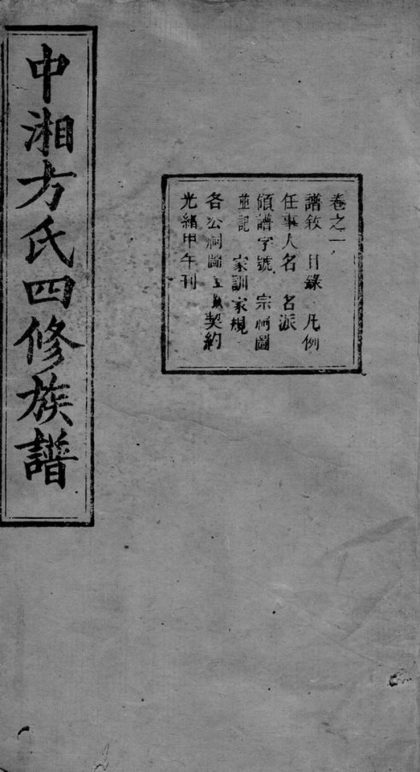 中湘方氏四修族譜
卷之一
譜敘 目錄 凡例
任事人名 名派
領譜字號 宗祠圖
墓記 家訓家規
各公祠圖 契約
光緒甲午刊